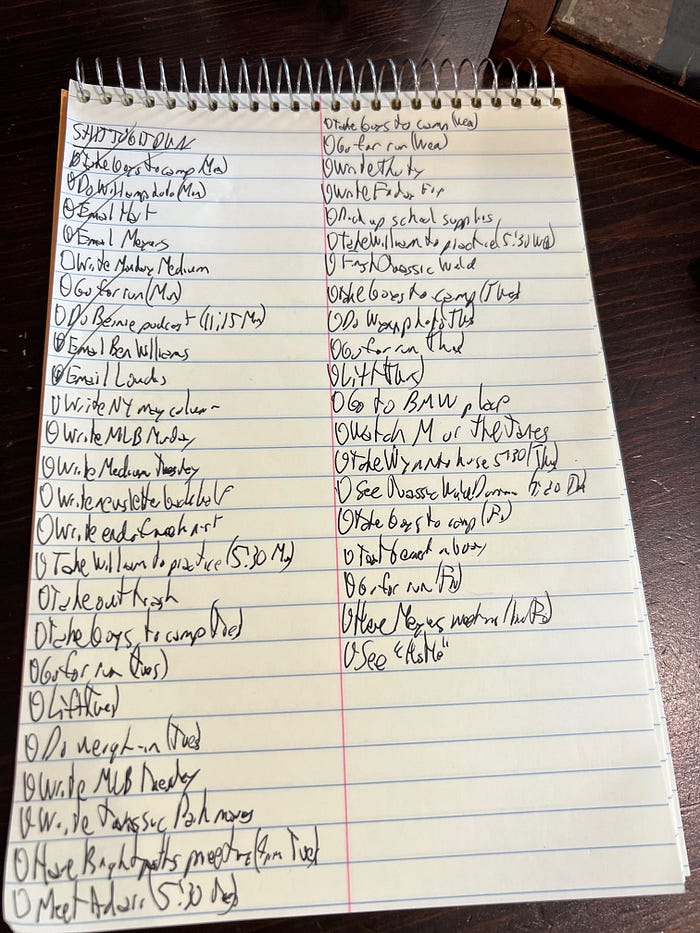 Take boys to camp (Mon)
Do William photo (Mon)
Email
Email Meyers
Write Monday Medium
Go for run (Mon)
Do Bernie podcast (11:15 Mon)
Email Ben Williams
Email
Write NY Mag column
Write MLB Monday
Write Medium Tuesday
Write newsletter
Write
Take William to practice (5:30 Mon)
Take out trash
Take boys to camp (Tue)
Go for run (Tues)
Lift (Tues)
Do weigh-in (Tues)
Write MLB Tuesday
Write Jurassic Park
Have meeting (4pm Tue)
Meet Adam (5:30
Take boys to camp (Wed)
Go for run (Wed)
Write
Write
Pick up school supplies
Take William to practice (5:30 Wed)
Jurassic World
Take boys to camp (Thu)
Do photo (Thu)
Go for run (Thu)
Lift (Thu)
Go to BMW place
Watch M or the
Take Wynn to horse 5:30 (Thu)
See Jurassic World Dominion 7:20
Take boys to camp (Fri)
Go for run (Fri)
Have Meyers meeting
See